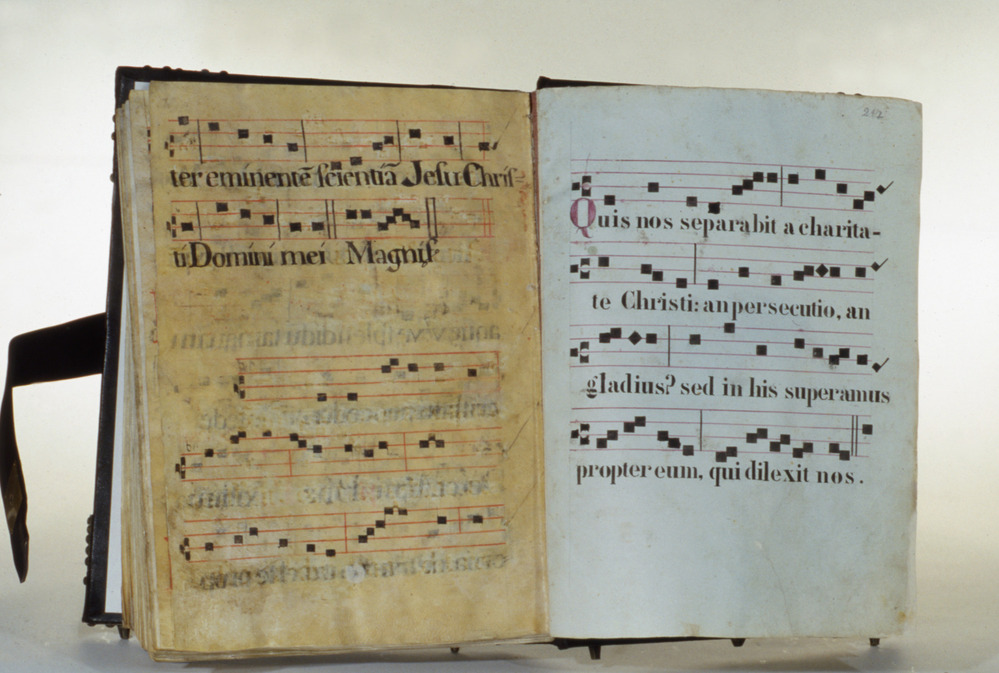 ter eminentē scientiā Jesu Chris-
ti Domini mei Magnif
212
Quis nos separabit a charita-
te Christi: an persecutio, an
gladius? sed in his superamus
propter eum, qui dilexit nos.